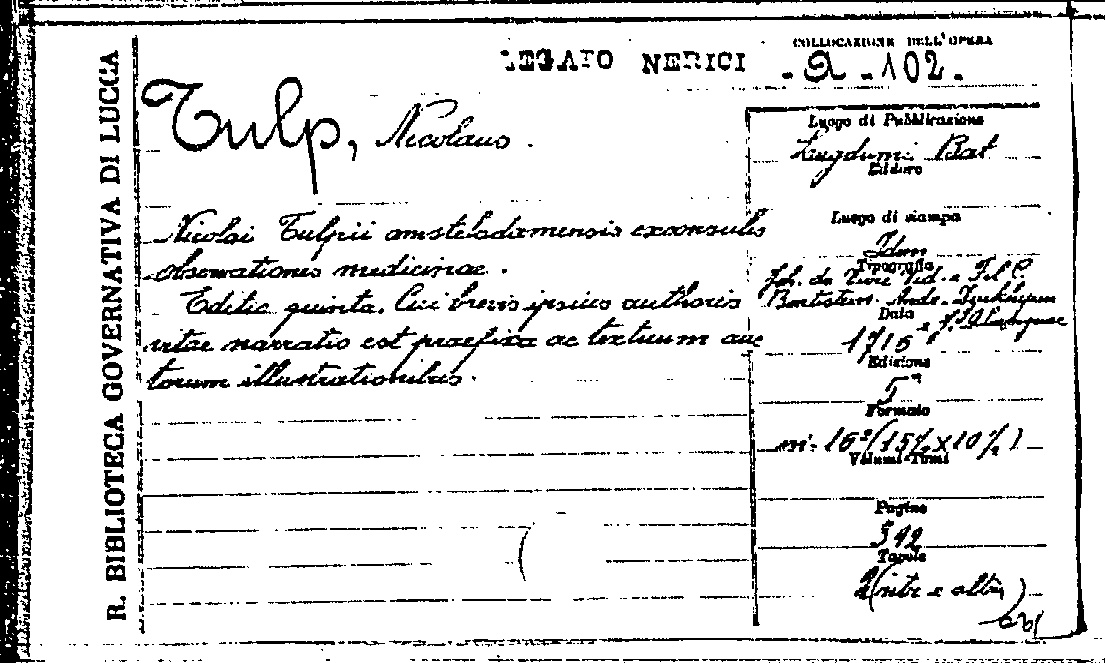 R. BIBLIOTECA GOVERNATIVA DI LUCCA
LEGATO NERICI
COLLOCAZIONE DELL'OPERA
- a - 102 -
Tulp, Nicolaus.
Nicolai Tulpii amsteladamensis exconsulis
observationes medicinae.
Editio quinta. Cui brevis ipsius authoris
vitae narratio est praefixa ac textuum auc
torum illustrationibus.
Luogo di Pubblicazione
Lugduni Bat
Editore
Luogo di stampa
Idem
Tipografia
Joh. du Vivie Vid. e Fil C.
Data
1716
Edizione
5ª
Formato
in-16°(15½x10½)
Volumi-Tomi
Pagine
392
Tavole
2 (ritr e altri)